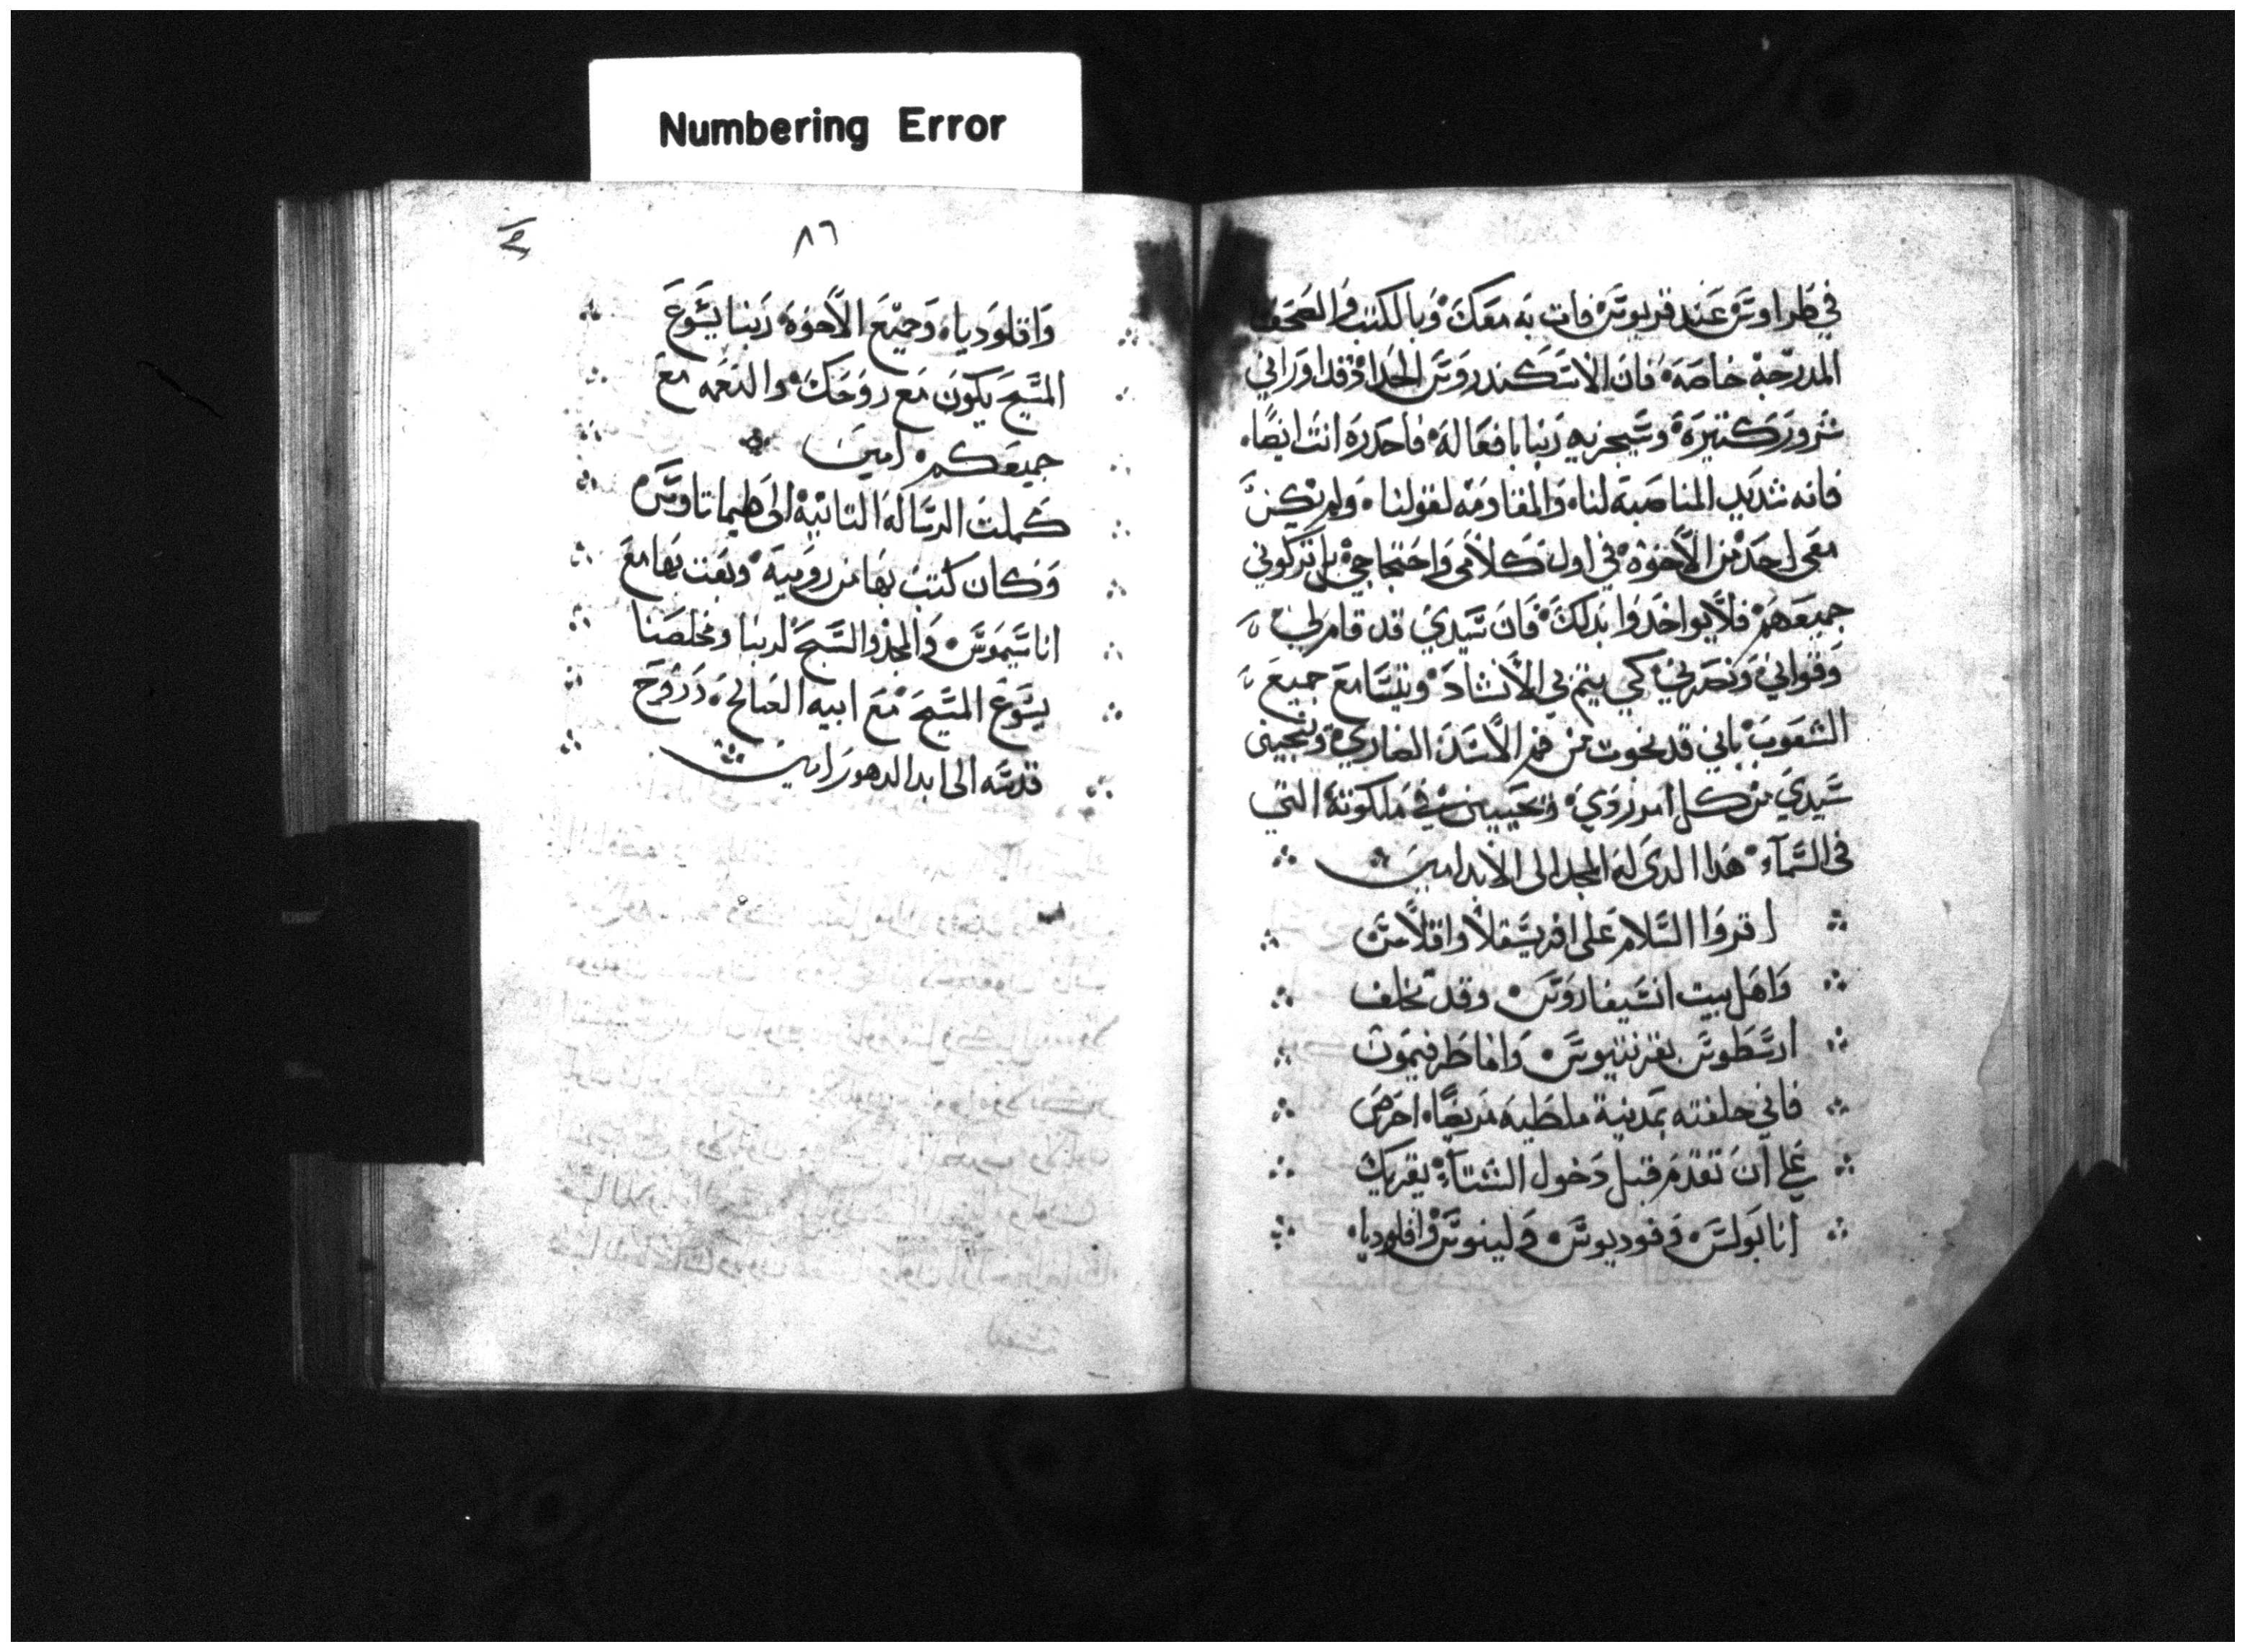 Numbering Error
في طراوس عند قربوس فات به معك وبالكتب والصحف
المدرجة خاصة فان الاسكندروس الحداد قد اوراني
شرور كتيرة وسيجزيه ربنا بافعاله فاحدره انت ايضا
فانه شديد المناصبة لنا والمقاومه لقولنا ولم يكن
معي احد من الاخوة في اول كلامي واحتجاجي بل تركوني
جميعهم فلا يواخدوا بدلك فان سيدي قد قام لي
وقواني ونصرني كي يتم بي الانشاد ويتسامع جميع
الشعوب باني قد نجوت من فم الاسد الضاري وينجيني
سيدي من كل امر ردي ويحييني في ملكوته التي
في السماء هدا الدي له المجد الى الابد امين
اقروا السلام على افريسقلا واقلاس
واهل بيت انسيفاروس وقد تخلف
ارسطوس بقرنتيوس واما طرفيمون
فاني خلفته بمدينة ملطيه مريضا احرص
على ان تقدم قبل دخول الشتاء يقريك
انا بولس وفوديوس ولينوس واقلوديا
٨٦
واقلوديا وجميع الاخوة ربنا يسوع
المسيح يكون مع روحك والنعمه مع
جميعكم امين
كملت الرسالة التانية الى طيماتاوس
وكان كتب بها من رومية وبعت بها مع
اناسيموس والمجد والسبح لربنا ومخلصنا
يسوع المسيح مع ابيه الصالح وروح
قدسه الى ابد الدهور امين